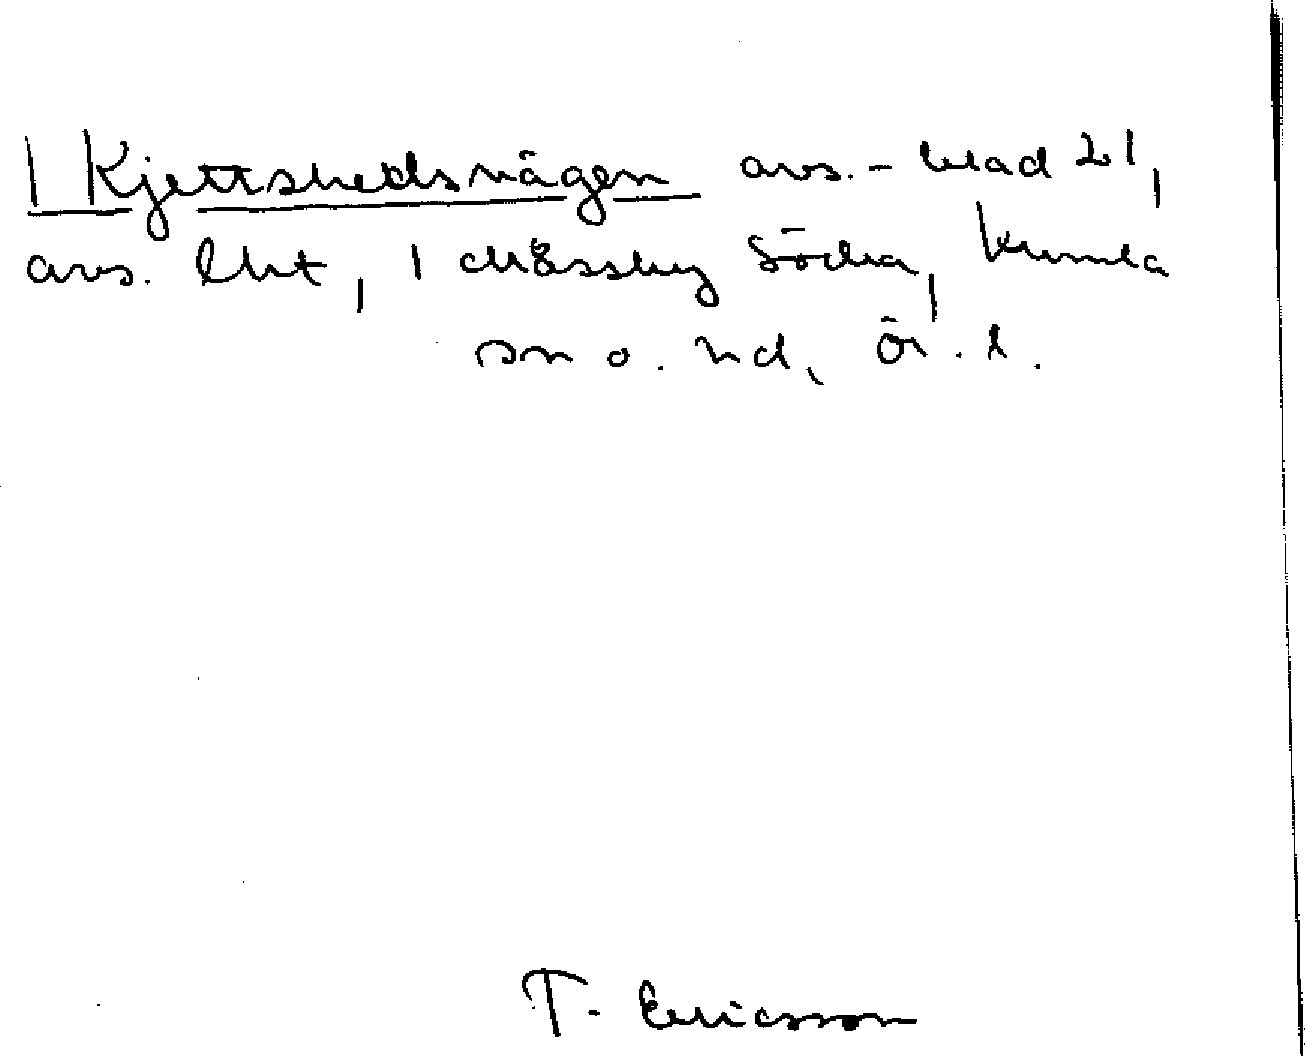 | Kjettshedsvägen avs. - blad 21,
avs. lht, | Måssby Södra, Kumla
sn o. hd, Ör. l.
T. Ericsson